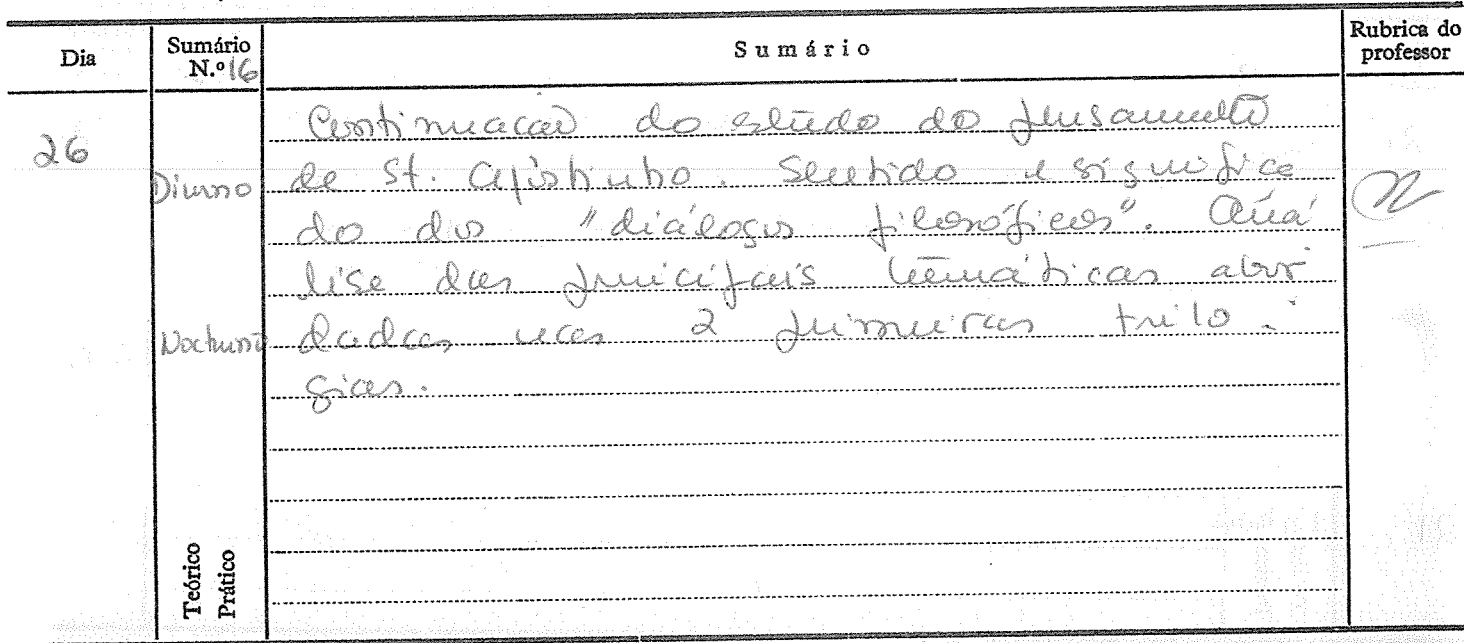 Dia
Sumário N.º 16
Sumário
Rubrica do professor
26
Diurno
Nocturno
Continuação do estudo do pensamento
de St. Agostinho. Sentido e significa
do dos "diálogos filosóficos". Aná
lise das principais temáticas abor
dadas nas 2 primeiras trilo-
gias.
Teórico
Prático